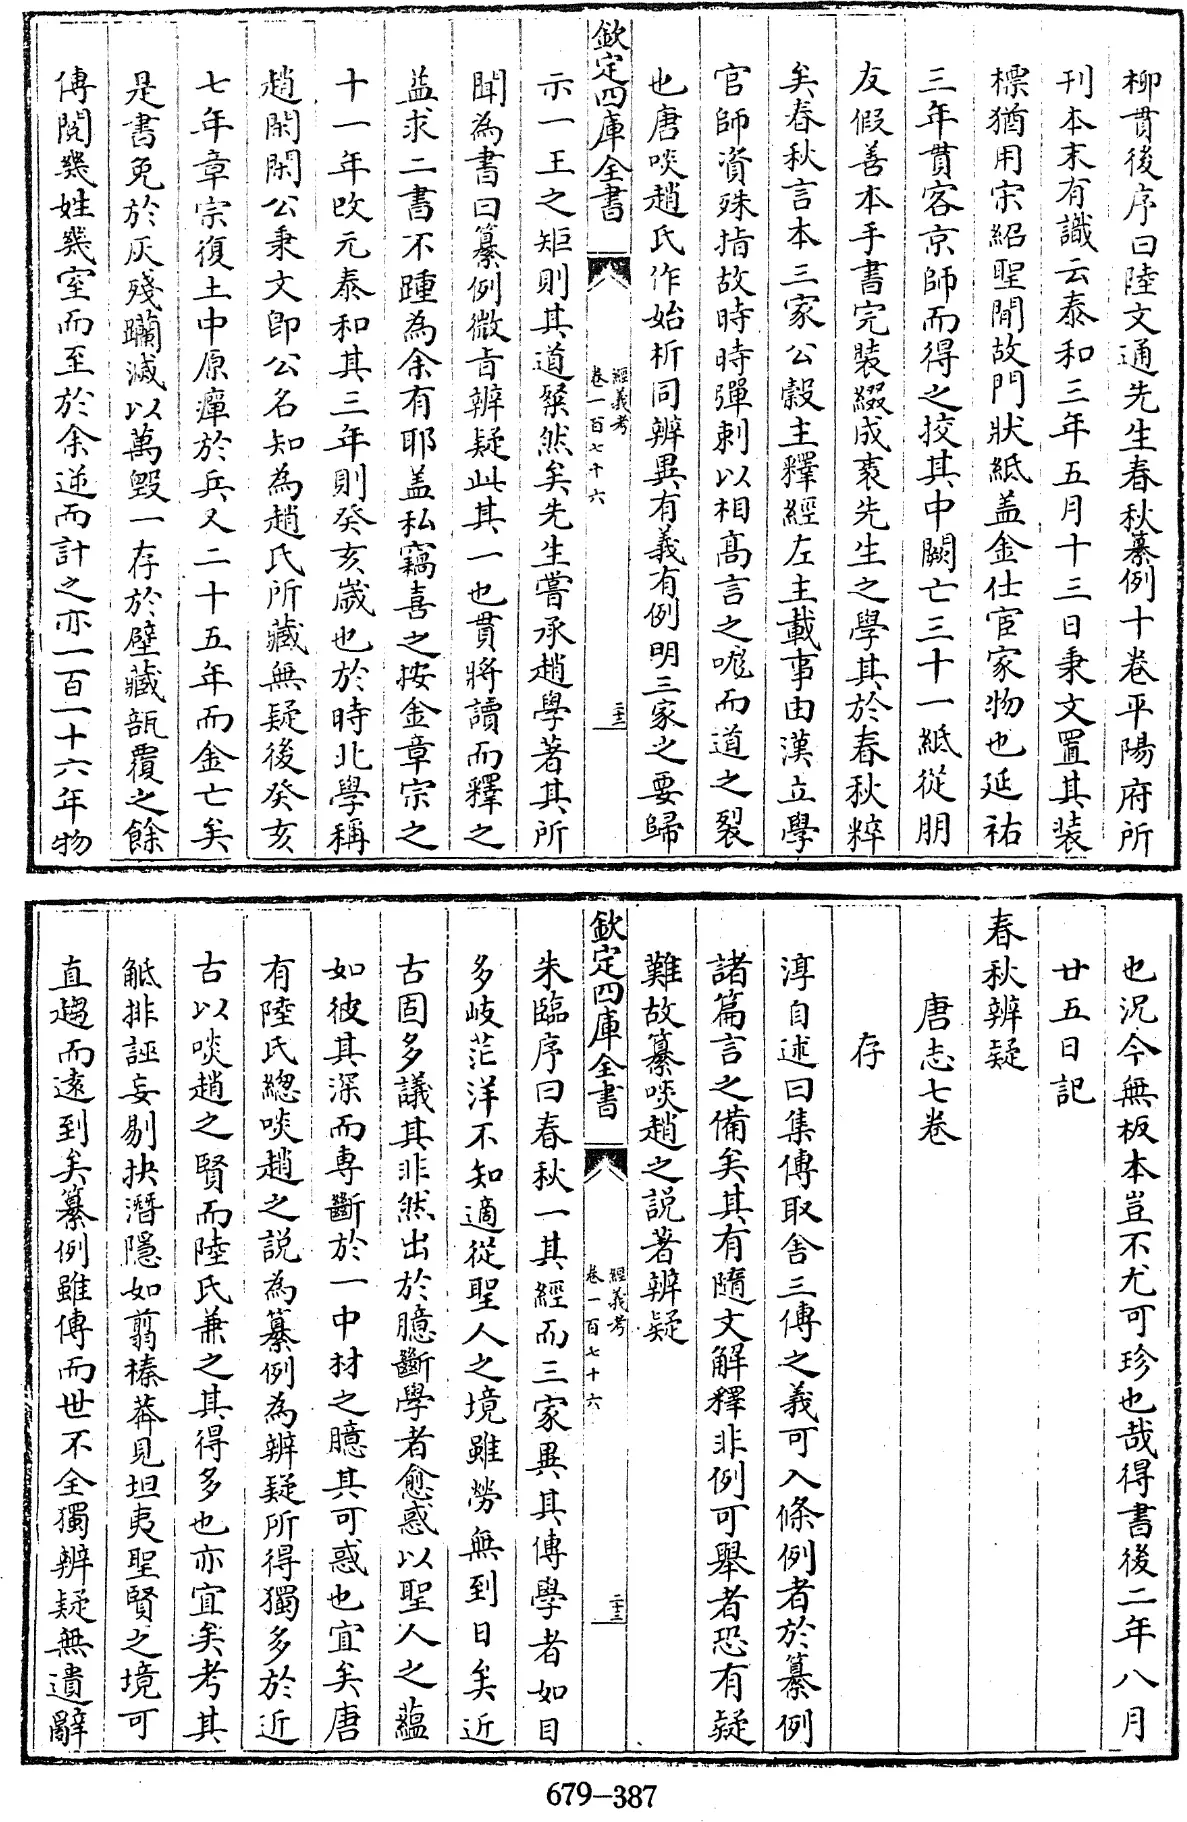 柳貫後序曰陸文通先生春秋纂例十卷平陽府所
刊本末有識云泰和三年五月十三日秉文置其裝
標猶用宋紹聖間故門狀紙盖金仕宦家物也延祐
三年貫客京師而得之挍其中闕亡三十一紙從朋
友假善本手書完裝綴成袠先生之學其於春秋粹
矣春秋言本三家公穀主釋經左主載事由漢立學
官師資殊指故時時彈刺以相髙言之嚨而道之裂
也唐啖趙氏作始析同辨異有義有例明三家之要歸
欽定四庫全書
經義考
卷一百七十六
二十二
示一王之矩則其道粲然矣先生嘗承趙學著其所
聞為書曰纂例微㫖辨疑此其一也貫將讀而釋之
益求二書不踵為余有耶盖私竊喜之按金章宗之
十一年改元泰和其三年則癸亥嵗也於時北學稱
趙閑閑公秉文即公名知為趙氏所藏無疑後癸亥
七年章宗復土中原癉於兵又二十五年而金亡矣
是書免於灰殘躪滅以萬毀一存於壁藏瓿覆之餘
傳閲幾姓幾室而至於余逆而計之亦一百一十六年物
也況今無板本豈不尤可珍也哉得書後二年八月
廿五日記
春秋辨疑
唐志七卷
存
淳自述曰集傳取舍三傳之義可入條例者於纂例
諸篇言之備矣其有隨文解釋非例可舉者恐有疑
難故纂啖趙之説著辨疑
欽定四庫全書
經義考
卷一百七十六
二十三
朱臨序曰春秋一其經而三家異其傳學者如目
多岐茫洋不知適從聖人之境雖勞無到日矣近
古固多議其非然出於臆斷學者愈惑以聖人之蘊
如彼其深而專斷於一中材之臆其可惑也宜矣唐
有陸氏緫啖趙之説為纂例為辨疑所得獨多於近
古以啖趙之賢而陸氏兼之其得多也亦宜矣考其
觝排誣妄剔抉潛隱如翦榛莽見坦夷聖賢之境可
直趨而逺到矣纂例雖傳而世不全獨辨疑無遺辭
679-387